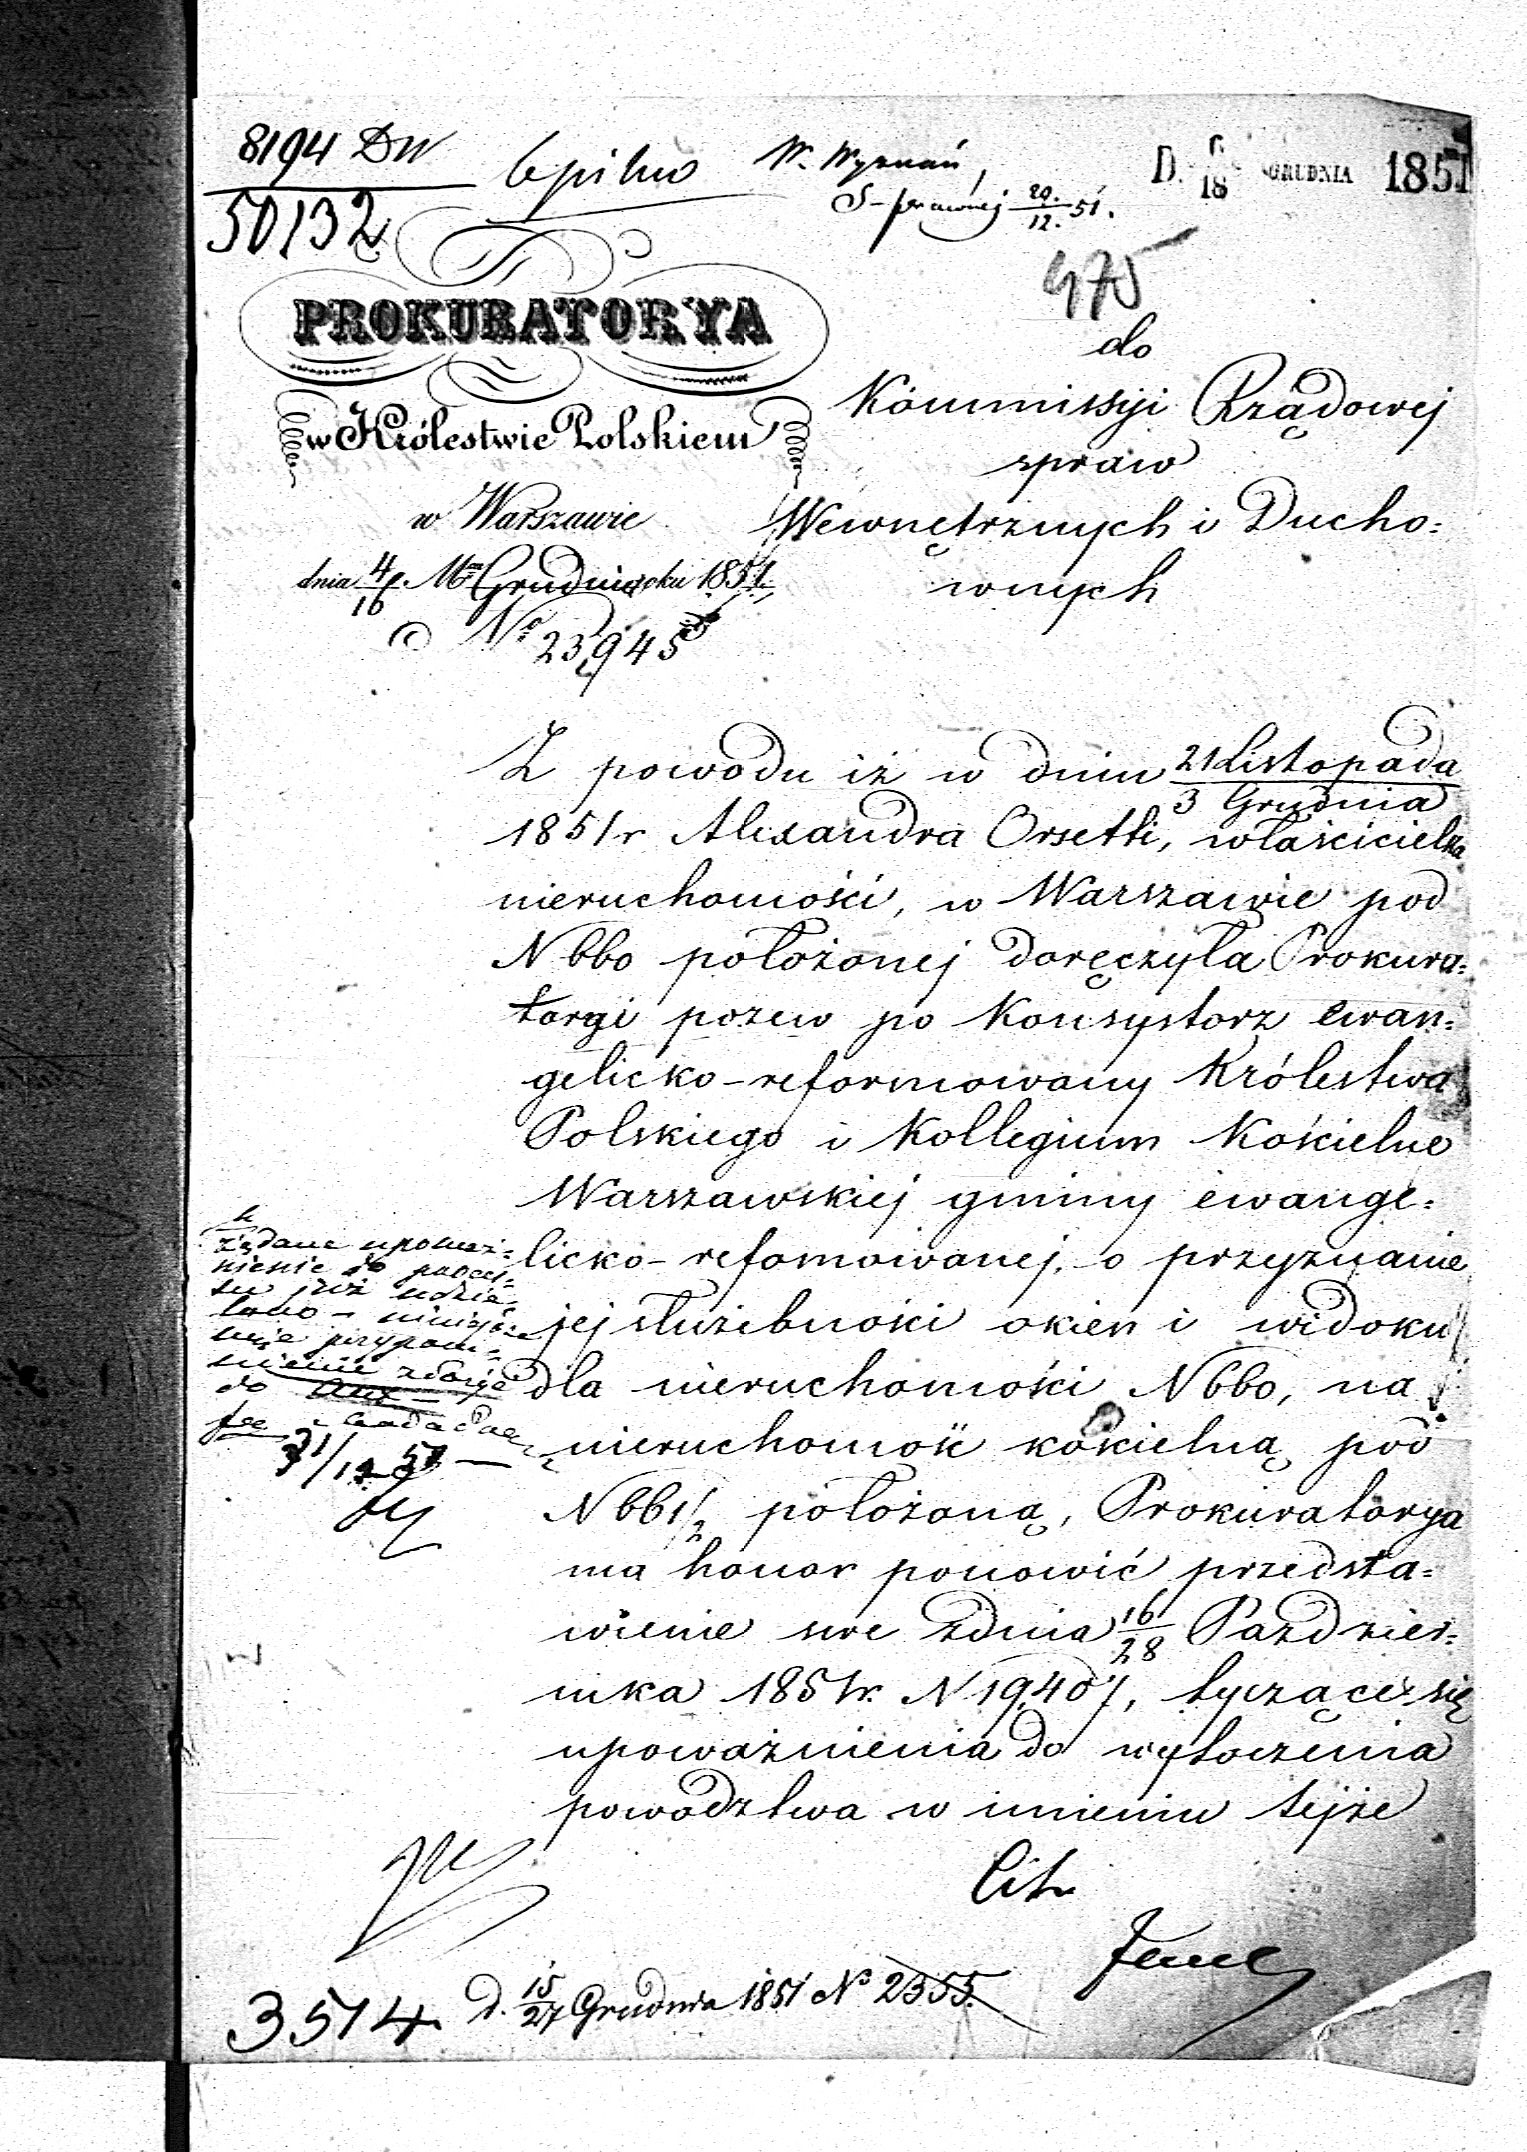 8194 DW
50132
W. Wyznań,
S-prawnej 20./12. 51.
D. 6/18 GRUDNIA 1851
475
PROKURATORYA
w Królestwie Polskiem
w Warszawie
dnia 4/16 Mca Grudnia roku 1851.
No 23,945
do
Kommissyi Rządowej
spraw
Wewnętrznych i Ducho=
wnych
Z powodu iż w dniu 21 Listopada/3 Grudnia
1851r Alexandra Orsetti, właścicielka
nieruchomości, w Warszawie pod
N 660 położonej doręczyła Prokura=
toryi pozew po Konsystorz ewan=
gelicko-reformowany Królestwa
Polskiego i Kollegium Kościelne
Warszawskiej gminy ewange=
licko-refomowanej, o przyznanie
jej służebności okien i widoku
dla nieruchomości N 660, na
nieruchomość kościelną pod
N 661/2 położoną, Prokuratorya
ma honor ponowić przedsta=
wienie swe zdnia 16/28 Paździer=
nika 1851r. N 19,407, tyczące się
upoważnienia do wytoczenia
powództwa w imieniu tejże
żądane upoważ=
nienie do proces=
su już udzie=
lono - niniejsze
przypom=
nienie złożyć
do
31/12 51
3514
d. 15/27 Grudnia 1851 No 2355.